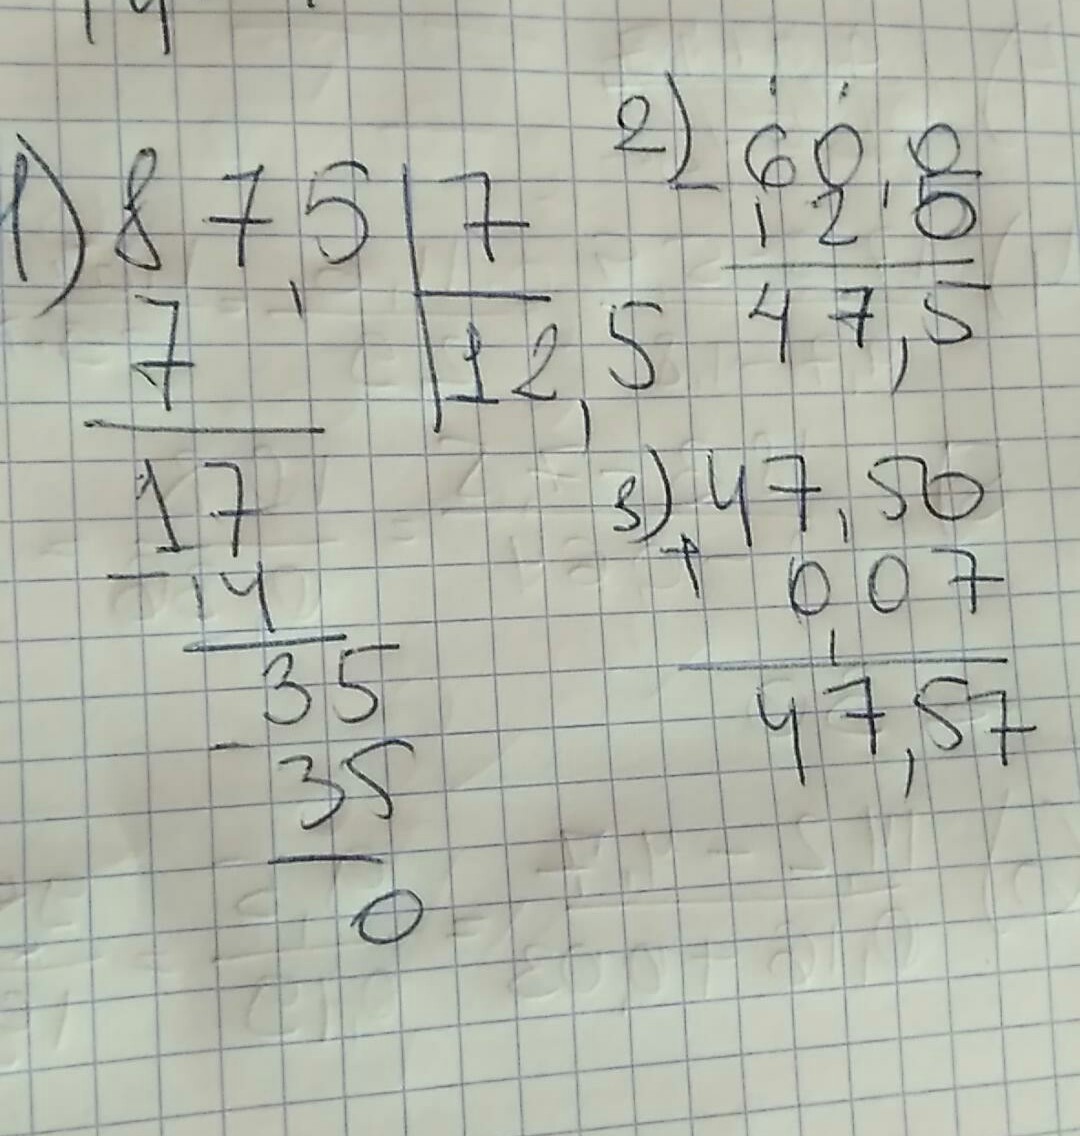 1) 87,5 | 7
7
12,5
17
- 14
35
- 35
0
2) - 60,0
12,5
47,5
3) + 47,50
0,07
47,57